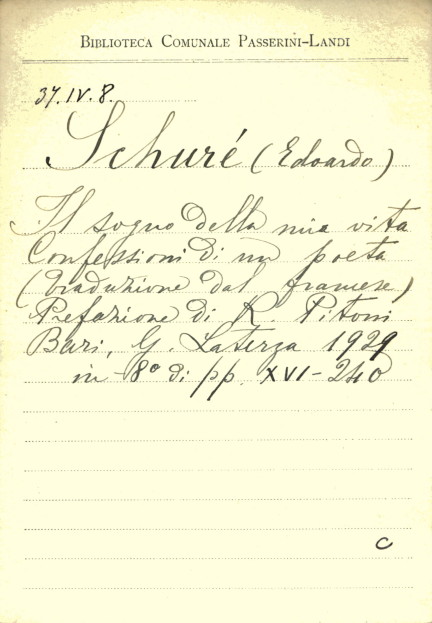 BIBLIOTECA COMUNALE PASSERINI-LANDI
37.IV.8.
Schuré (Edoardo)
Il sogno della mia vita
Confessioni di un poeta
(traduzione dal francese)
Prefazione di R. Pitoni
Bari, G. Laterza 1929
in 8° di pp. XVI-240
C